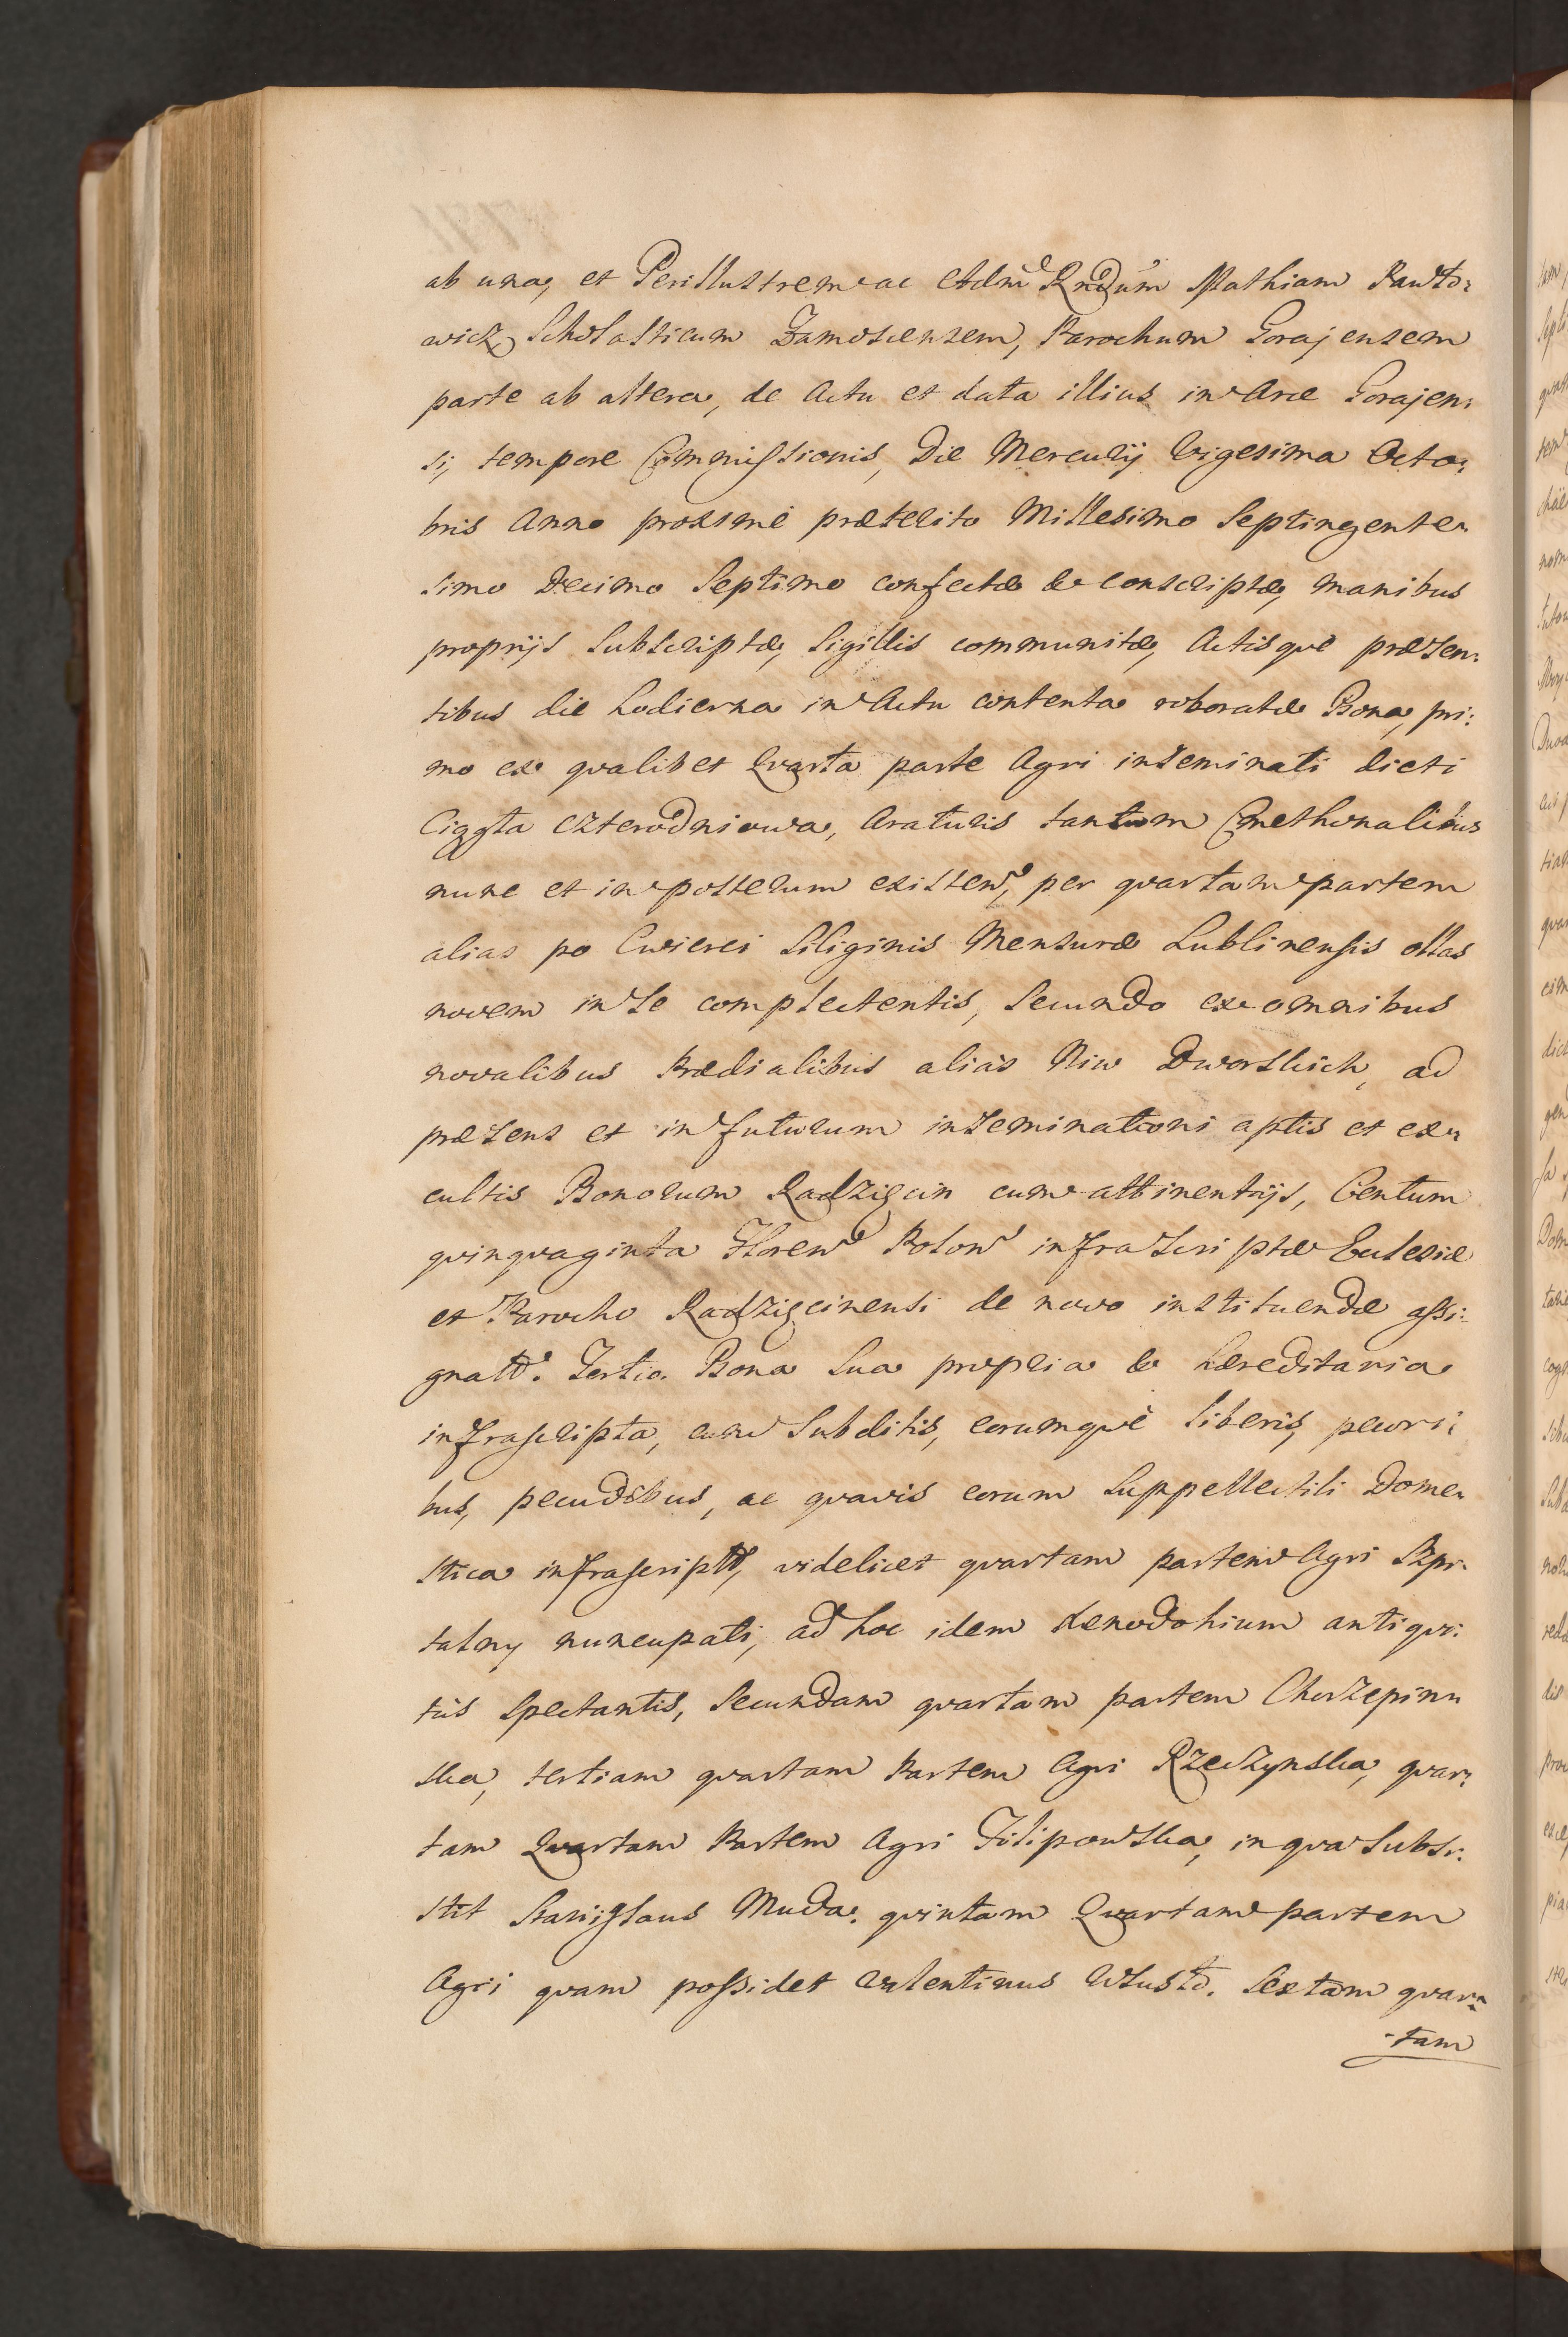 ab una, et Perillustrem ac Adm̃ Rndum Mathiam Pawło:
wicz Scholasticum Zamoscensem, Parochum Gorajensem
parte ab altera, de Actu et data illius in Arce Gorajen:
si, tempore Commissionis, Die Mercurij Vigesima Octo:
bris Anno proximè præterito Millesimo Septingente:
simo Decimo Septimo confectæ & conscriptæ, manibus
proprijs subscriptæ, Sigillis communitæ, Actisque præsen:
tibus die hodierna in Actu contenta roboratæ Bona, pri:
mo ex qualibet Quarta parte Agri inseminati dicti
Ciągła czterodniowa, Araturis tantum Cmethonalibus
nunc et in posterum existen, per quartam partem
alias po Cwierci Siliginis Mensuræ Lublinensis ollas
novem in se complectentis, Secundo ex omnibus
novalibus Prædialibus alias Niw Dworskich, ad
præsens et in futurum inseminationi aptis et ex:
cultis Bonorum Radzięcin cum attinentijs, Centum
quinquaginta Floren Polon infrascriptæ Ecclesiæ
et Parocho Radzięcinensi de novo instituendæ assi:
gnatt. Tertio. Bona sua propria & hæreditaria
infrascripta, cum Subditis, eorumque liberis, pecori:
bus, pecudibus, ac quavis eorum Suppellectili Dome:
stica infrascriptt, videlicet quartam partem Agri Szpi:
talny nuncupati, ad hoc idem Xenodohium antiqui:
tus spectantis, Secundam quartam partem Chorzepinn
ska, tertiam quartam Partem Agri Rzeczynska, quar:
tam Quartam Partem Agri Filipowska, in qua subsi:
stit Stanislaus Muda. quintam Quartam partem
Agri quam possidet Valentinus Włusto. Sextam quar:
-tam